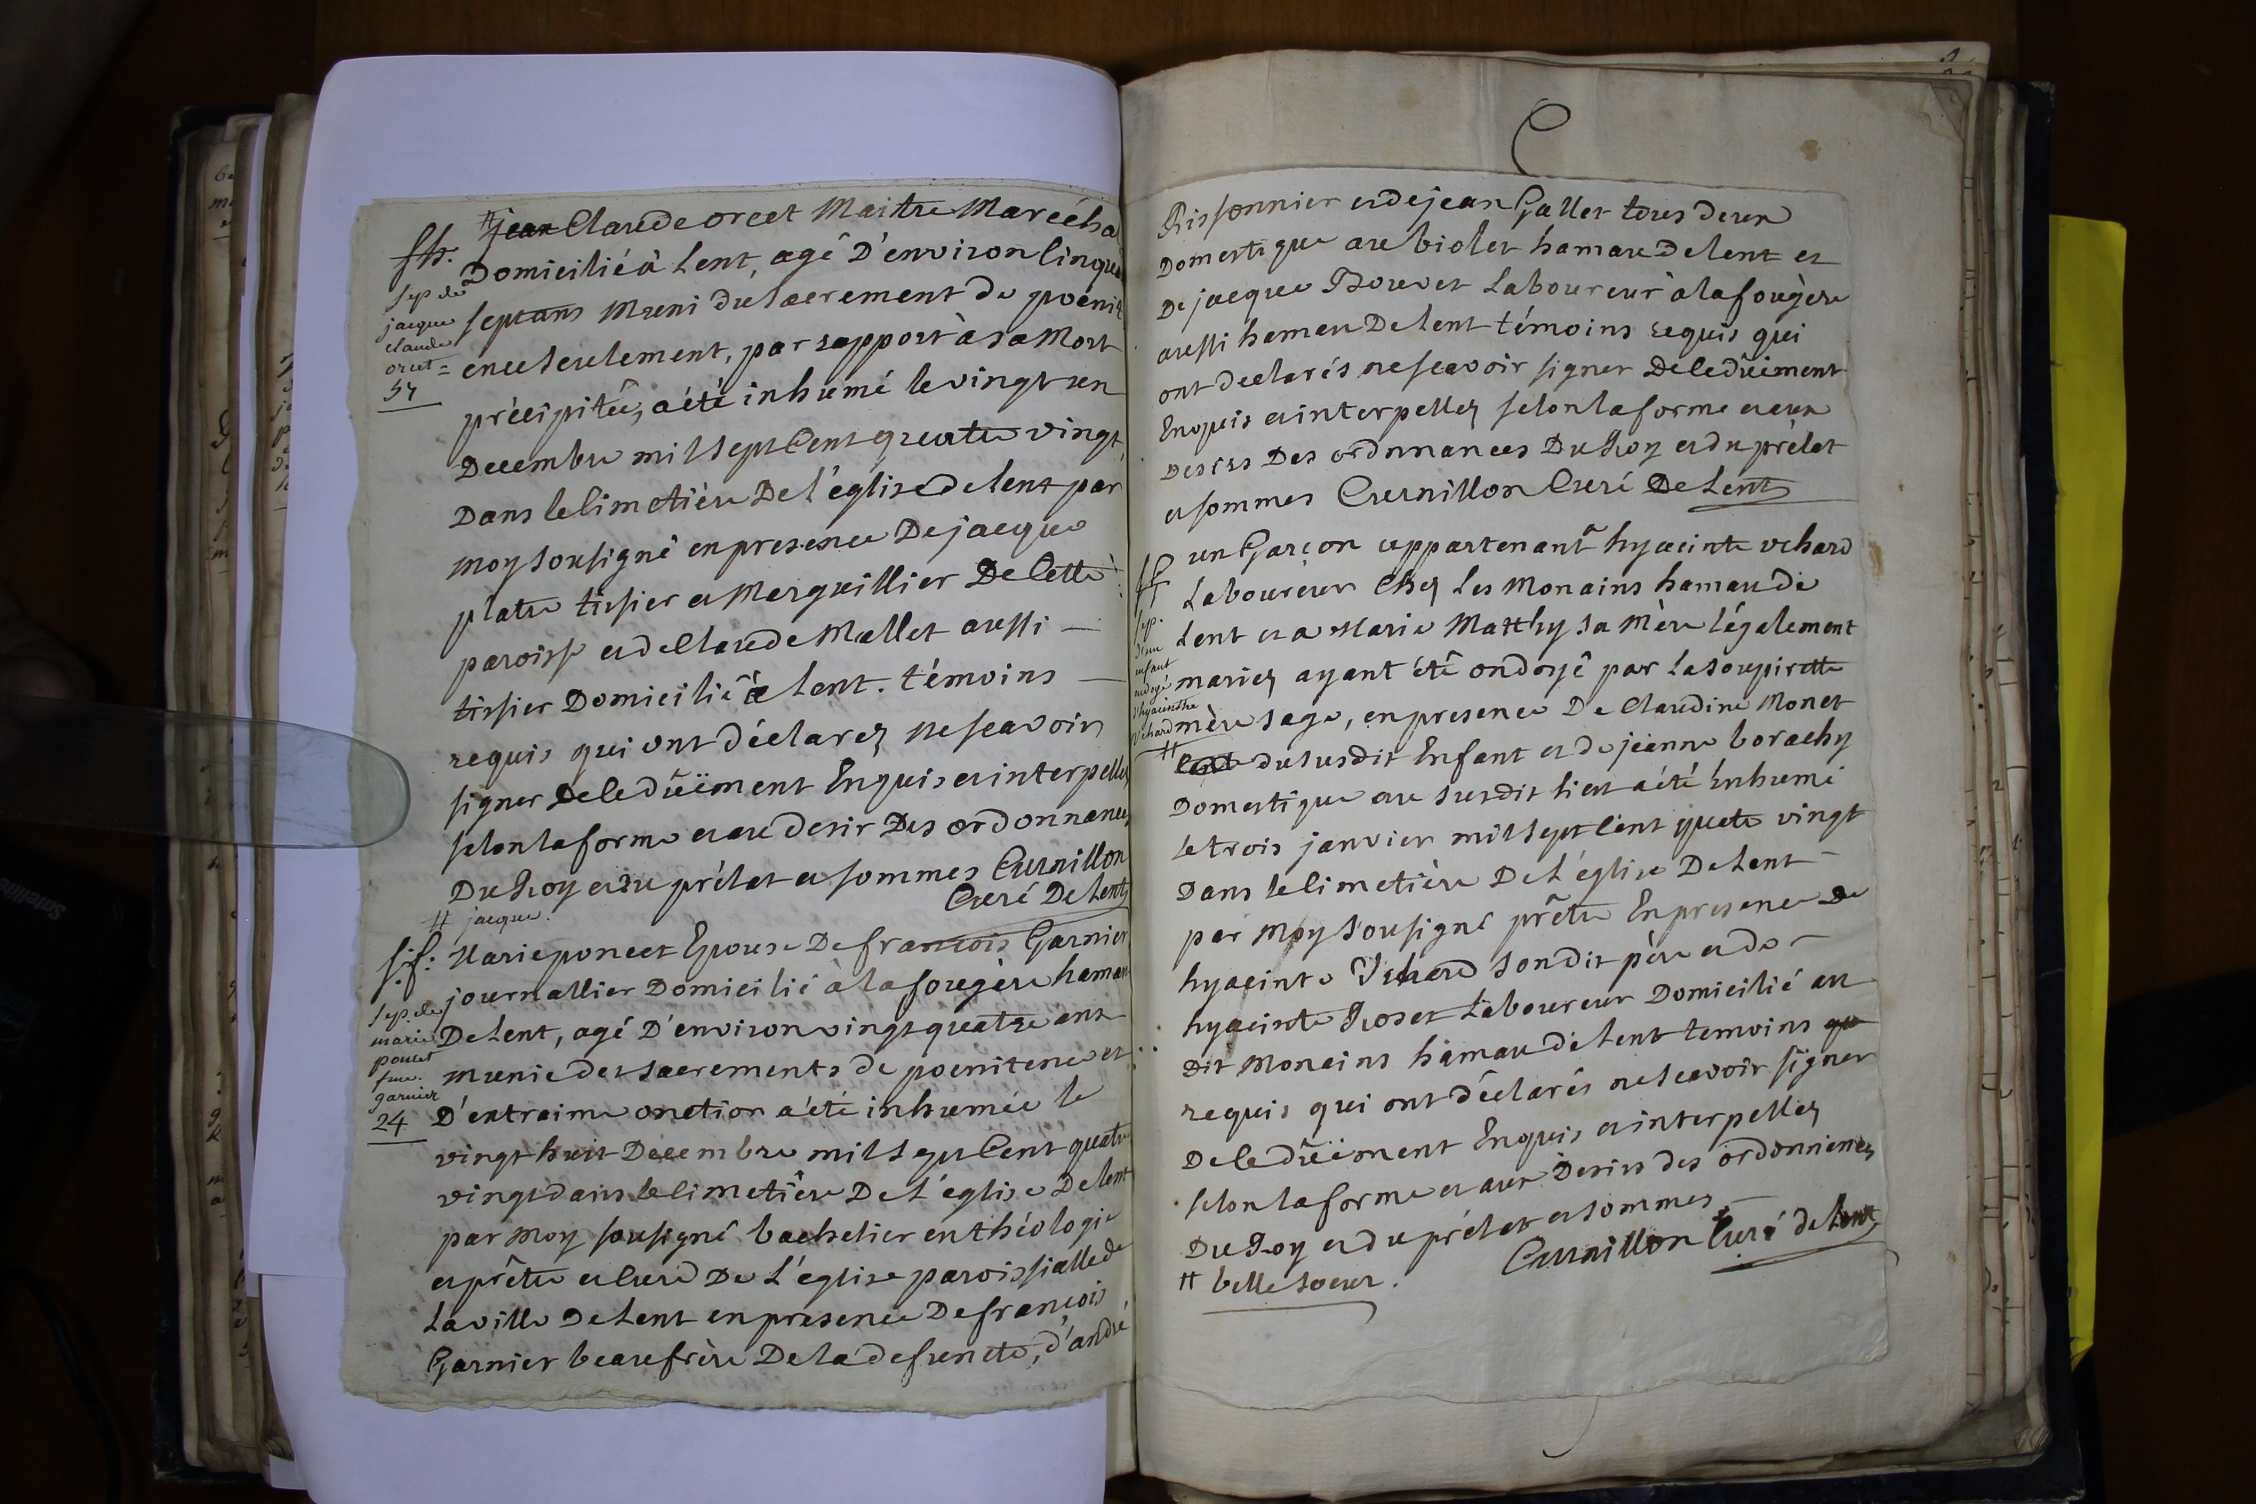 sh.
sep de
jacque
claude
orcet =
57
# jean Claude orcet Maitre Maréchal
Domicilié à Lent, agé D'environ Cinquante
septans Muni du sacrement de poenit
ence seulement, par rapport à sa Mort
précipitée, a été inhumé le vingt un
Decembre mil sept Cent quatre vingt
Dans le Cimetière De L'église de lent par
moy sousigné en presence De jacque
platre tissier et Marguillier De Cette
paroisse et de Claude Mallet aussi —
tissier Domicilié à Lent. témoins —
requis qui ont déclarez ne scavoir
signer De ce dûëment Enquis et interpellez
selon la forme et au desir Des ordonnances
Du Roy et du prélat et sommes Curnillon
Curé De Lent
# jacque.
s.f.
sep. de
marie
poncet
fme.
garnier
24
Marie poncet Epouse De françois Garnier
journallier Domicilié à la fougère hamau
De Lent, agé D'environ vingt quatre ans
munie des sacrements de poenitence et
D'extraime onction a été inhumée le
vingt huit Decembre mil sept Cent quatre
vingt dans le Cimetière De L'église De lent
par Moy sousigné bachelier en théologie
et prêtre et Curé De L'église paroissialle de
La ville De Lent en presence De françois
Garnier beaufrère De la defuncte, d'andré
Rissonnier et de jean Gallet tous deux
Domestique au biolet hamau De lent et
De jacque Bouvet Laboureur à la fougère
aussi hamau De lent témoins requis qui
ont declarés ne scavoir signer De ce dûëment
Enquis et interpellez selon la forme et aux
Desirs Des ordonnances Du Roy et du prélat
et sommes Curnillon Curé De Lent
sep.
d'un
enfant
ondoyé
d'hyacinthe
Vchard
un Garçon appartenant à hyacinte vchard
Laboureur Chez Les Monains hamau de
Lent et a Marie Matthy sa Mère légalement
mariez ayant été ondoyé par La soupirette
mère sage, en presence De Claudine Monet
# du susdit Enfant et de jeanne borachy
Domestique au susdit lieu a été Enhumé
le trois janvier mil sept Cent quatre vingt
Dans le Cimetière De L'église De Lent —
par Moy sousigné prêtre En presence De
hyacinte Vchard son dit père et de —
hyacinte Roset Laboureur Domicilié au
Dit Monains hamau de Lent temoins
requis qui ont déclarés ne scavoir signer
De ce dûëment Enquis et interpellez
selon la forme et aux Desirs des ordonnances
Du Roy et du prélat et sommes —
Curnillon Curé de Lent
# belle soeur.